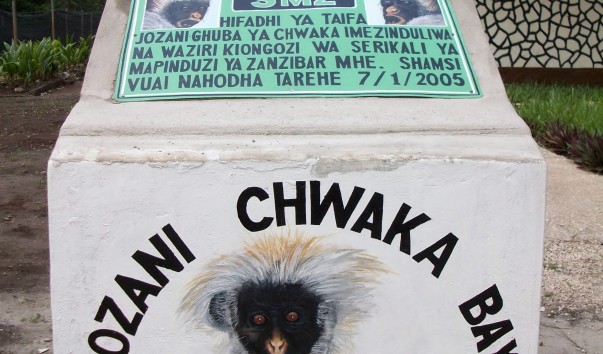 SMZ
HIFADHI YA TAIFA
JOZANI GHUBA YA CHWAKA IMEZINDULIWA
NA WAZIRI KIONGOZI WA SERIKALI YA
MAPINDUZI YA ZANZIBAR MHE. SHAMSI
VUAI NAHODHA TAREHE 7/1/2005
JOZANI CHWAKA BAY